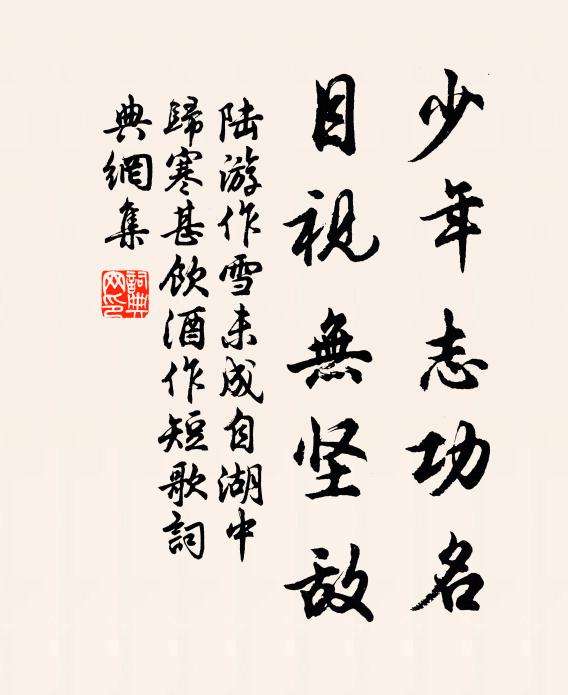 少年志功名
目視無坚敌
陆游作雪未成自湖中
歸寒甚飲酒作短歌詞
典網集
詞典网印